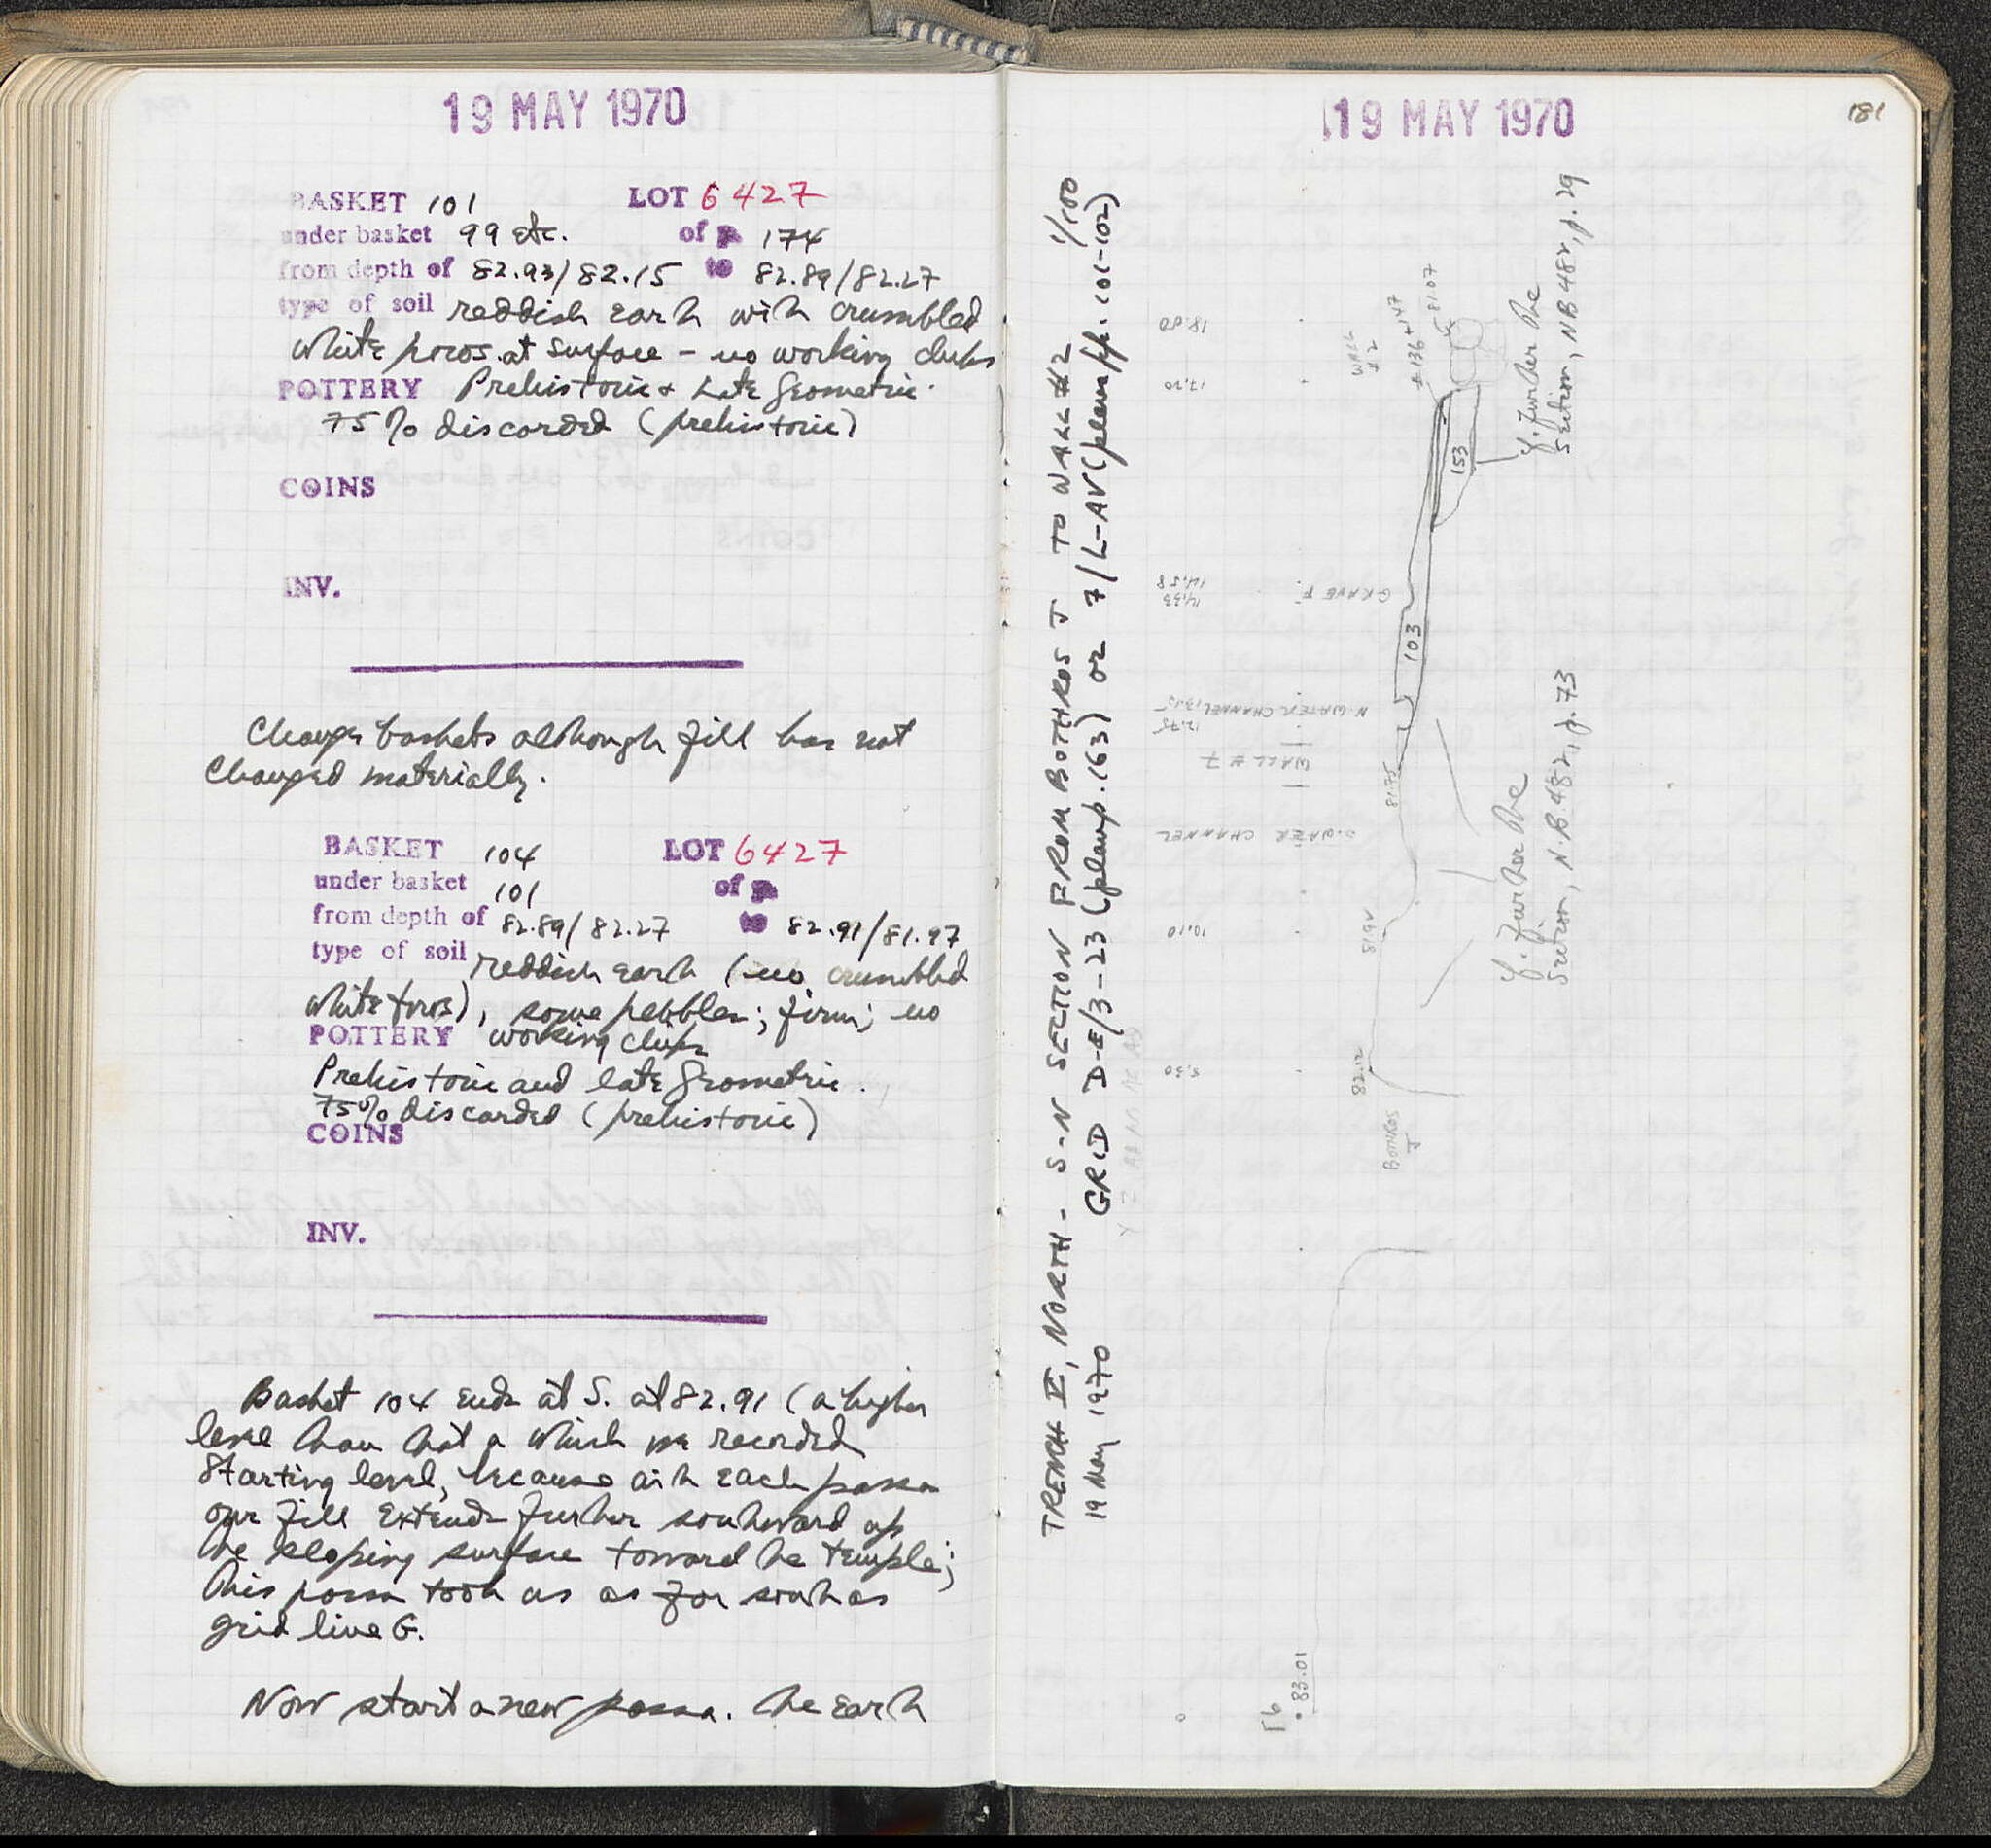 19 MAY 1970
BASKET 101 LOT 6427
under basket 99 etc. of p. 174
from depth of 82.93/82.15 to 82.89/82.27
type of soil reddish earth with crumbled
white poros at surface - no working chips
POTTERY Prehistoric + Late Geometric.
75% discarded (prehistoric)
COINS
INV.
Change baskets although fill has not
changed materially.
BASKET 104 LOT 6427
under basket 101 of p.
from depth of 82.89/82.27 to 82.91/81.97
type of soil reddish earth (no crumbled
white poros), some pebbles; firm; no
POTTERY working chips
Prehistoric and late Geometric.
75% discarded (prehistoric)
COINS
INV.
Basket 104 ends at S. at 82.91 (a higher
level than that at which we recorded
starting level, because with each passa
our fill extends further southward up
the sloping surface toward the temple;
this passa took us as far south as
grid line G.
Now start a new passa. The earth
19 MAY 1970
181
TRENCH II, NORTH - S-N SECTION FROM BOTHROS J TO WALL #2 1/100
19 May 1970 GRID D-E/3-23 (plan p. 163) or 7/L-AV (plans pp. 101-102)
18.00
17.20
WALL #2
#136+147
81.07
153
cf. further the
section, NB 482, p. 29
14.58
14.33
GRAVE F
103
N. WATER CHANNEL 13.15
12.75
WALL #7
81.75
S. WATER CHANNEL
cf. further the
section, N.B. 482, p. 73
10.10
81.92
5.30
82.12
BOTHROS
J
0
83.01